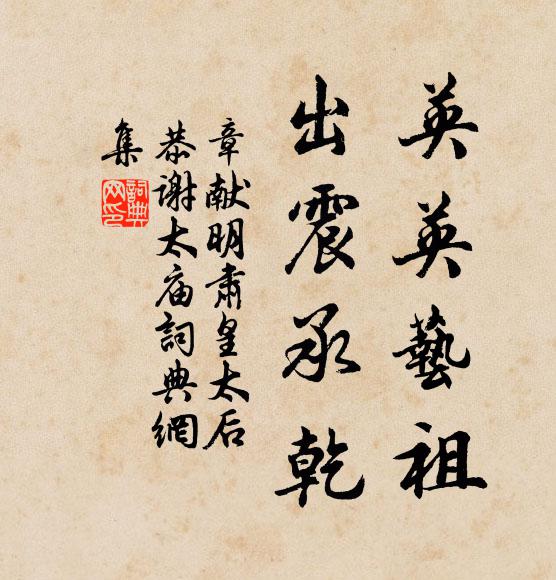 英英藝祖
出震承乾
章献明肅皇太后
恭谢太庙詞典網
集
詞典
网印